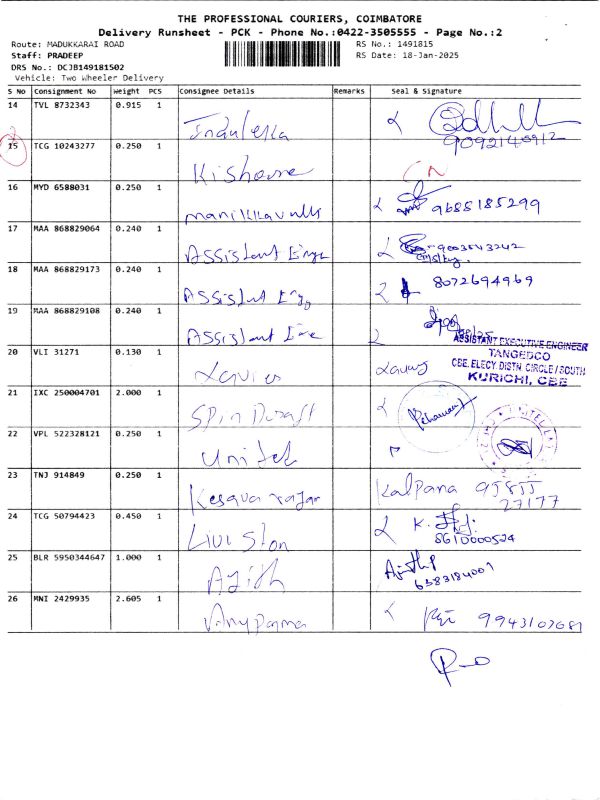 THE PROFESSIONAL COURIERS, COIMBATORE
Delivery Runsheet - PCK - Phone No.:0422-3505555 - Page No.:2
Route: MADUKKARAI ROAD RS No.: 1491815
Staff: PRADEEP RS Date: 18-Jan-2025
DRS No.: DCJB149181502
Vehicle: Two Wheeler Delivery
S No Consignment No Weight PCS Consignee Details Remarks Seal & Signature
14 TVL 8732343 0.915 1
9092145912
15 TCG 10243277 0.250 1 Kishore
16 MYD 6588031 0.250 1 9685185299
17 MAA 868829064 0.240 1 Assistant Enge
18 MAA 868829173 0.240 1 Assistant Eng 8072694969
19 MAA 868829108 0.240 1 Assistant
ASSISTANT EXECUTIVE ENGINEER
TANGEDCO
CBE. ELECY. DISTN. CIRCLE / SOUTH
KURICHI, CBE
20 VLI 31271 0.130 1
21 IXC 250004701 2.000 1 Spin
22 VPL 522328121 0.250 1 Unitek
23 TNJ 914849 0.250 1 Kesavarajan Kalpana 95855
27177
24 TCG 50794423 0.450 1 Livi ston K.
8610000524
25 BLR 5950344647 1.000 1 Ajith Ajith P
6383184009
26 MNI 2429935 2.605 1 9943107681